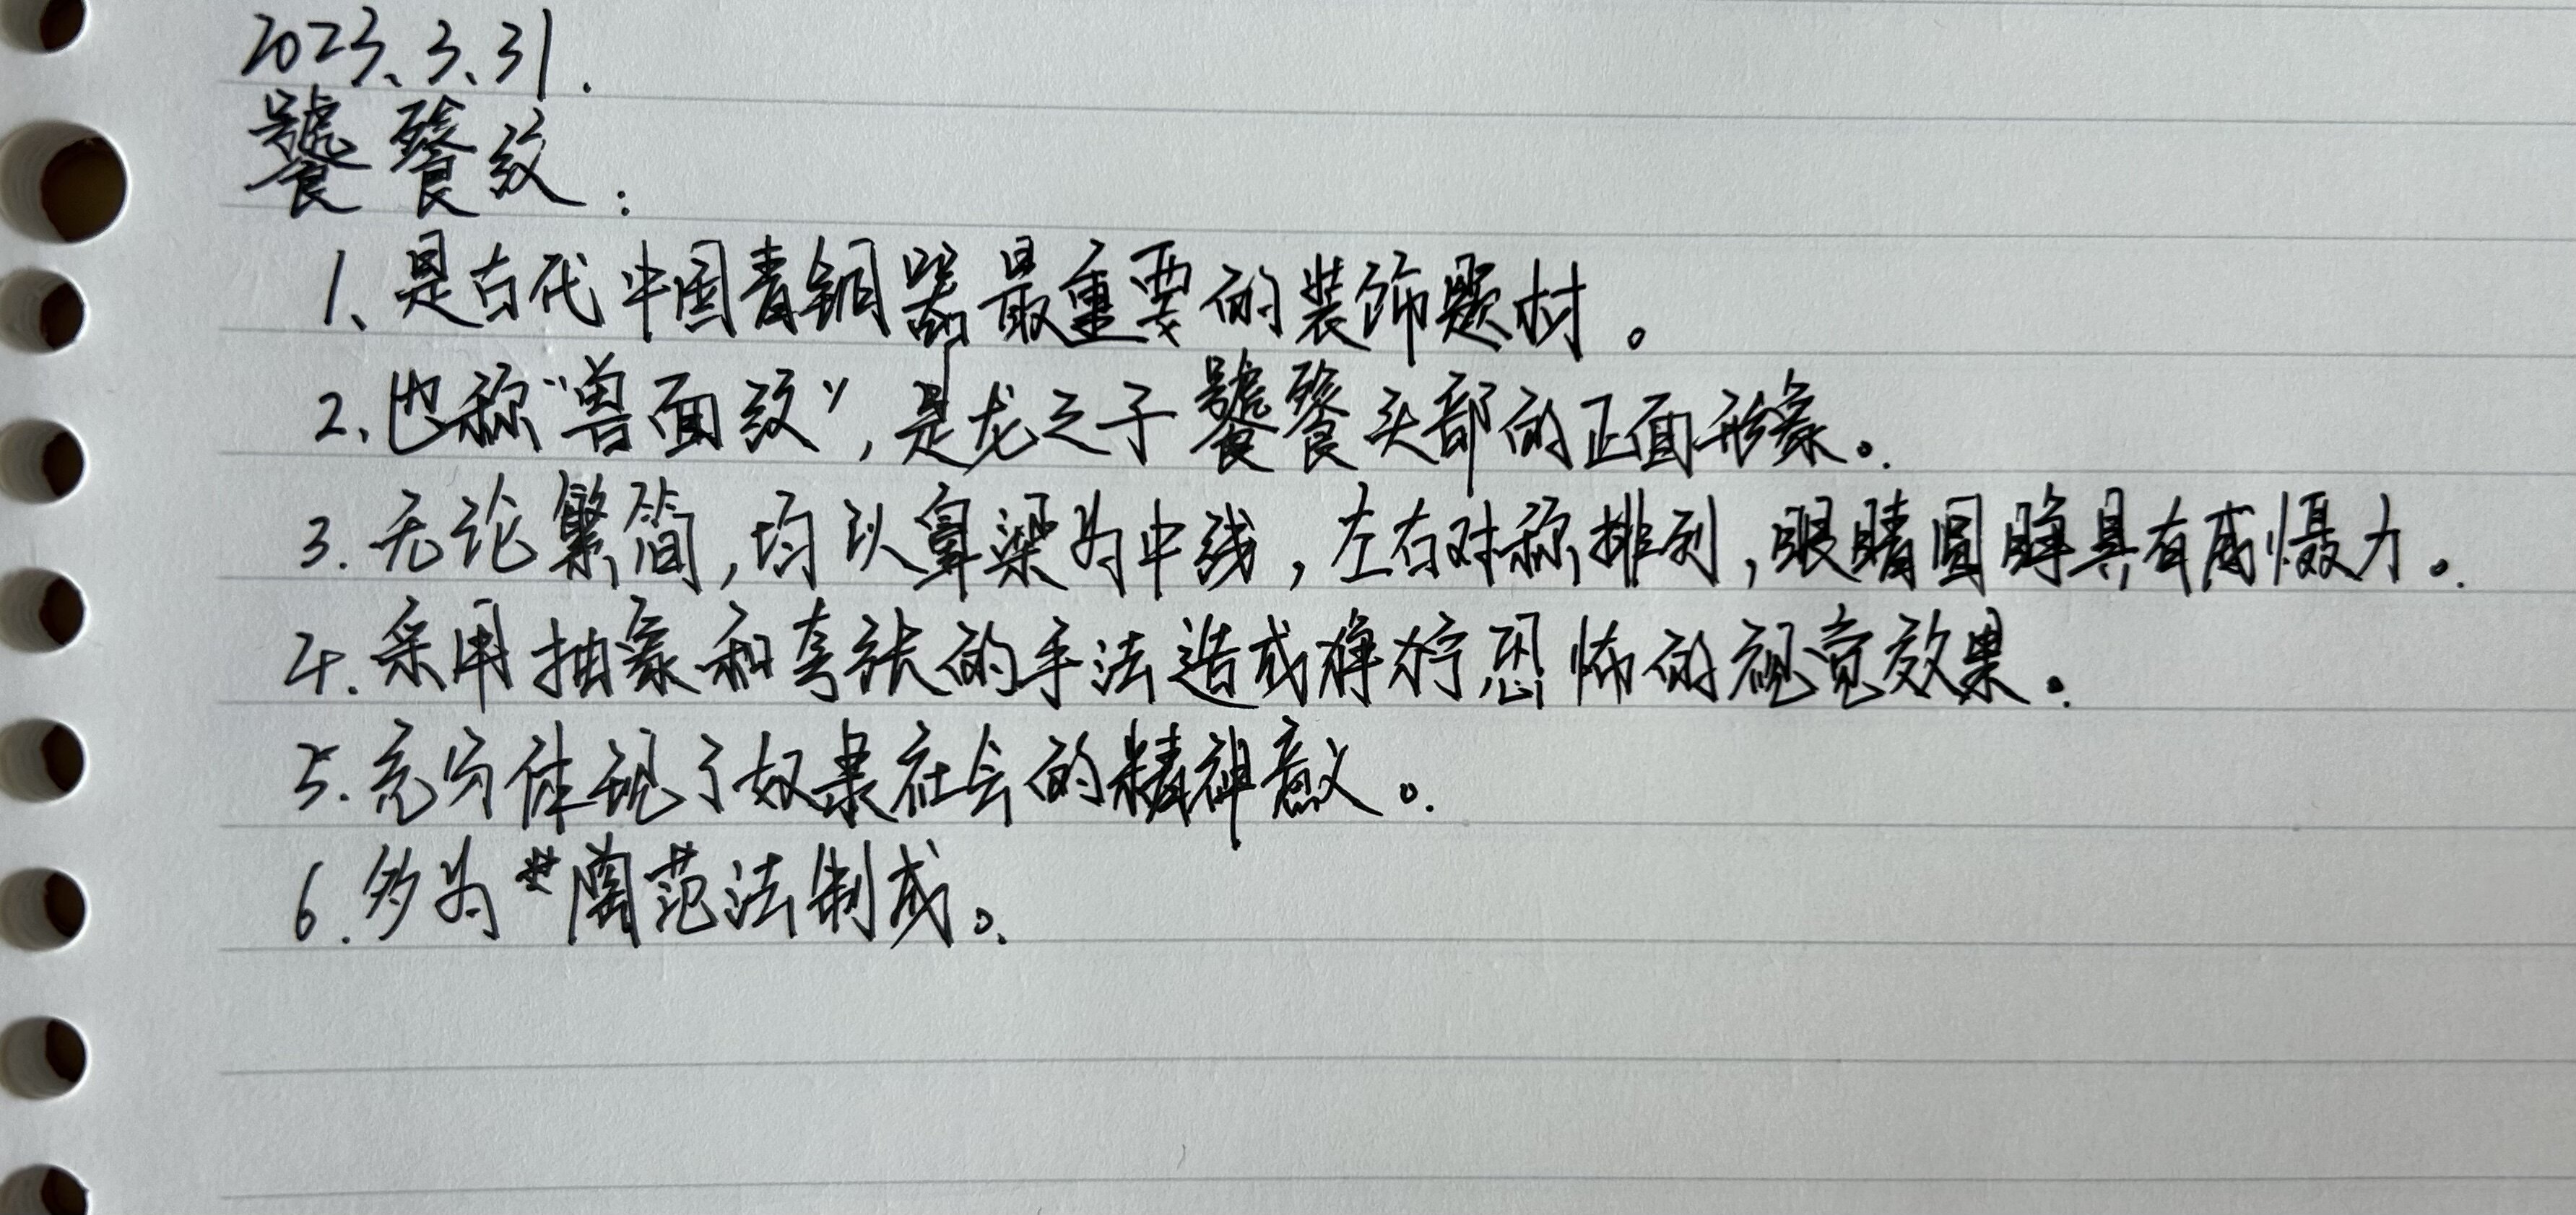 2023、3、31.
饕餮纹：
1、是古代中国青铜器最重要的装饰题材。
2、也称“兽面纹”,是龙之子饕餮头部的正面形象。
3.无论繁简,均以鼻梁为中线,左右对称排列,眼睛圆睁具有威慑力。
4.采用抽象和夸张的手法造成狰狞恐怖的视觉效果。
5.充分体现了奴隶社会的精神意义。
6.多为陶范法制成。